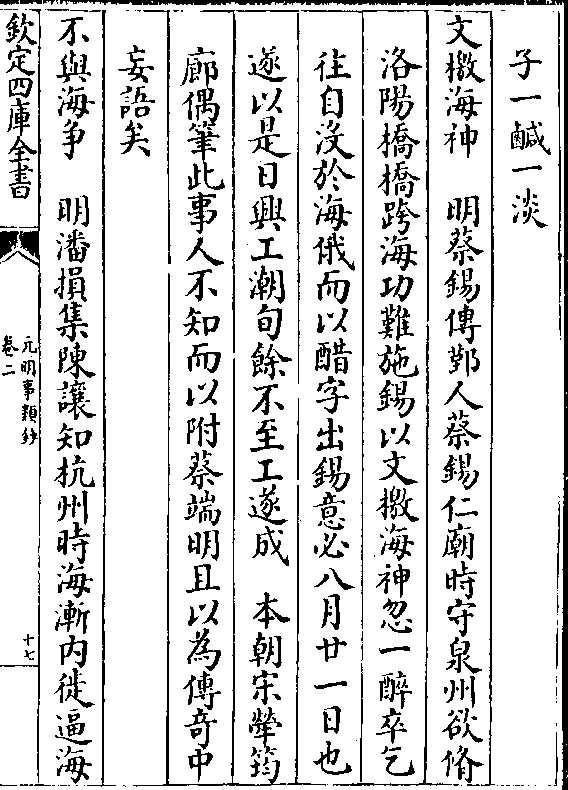 子一鹹一淡
文檄海神　明蔡錫傳鄞人蔡錫仁廟時守泉州欲脩
洛陽橋橋跨海功難施錫以文檄海神忽一醉卒乞
往自没於海俄而以醋字出錫意必八月廿一日也
遂以是日興工潮旬餘不至工遂成　本朝宋犖筠
廊偶筆此事人不知而以附蔡端明且以為傳奇中
妄語矣
不與海爭　明潘損集陳讓知杭州時海漸内徙逼海
欽定四庫全書
元明事類鈔
卷二
十七